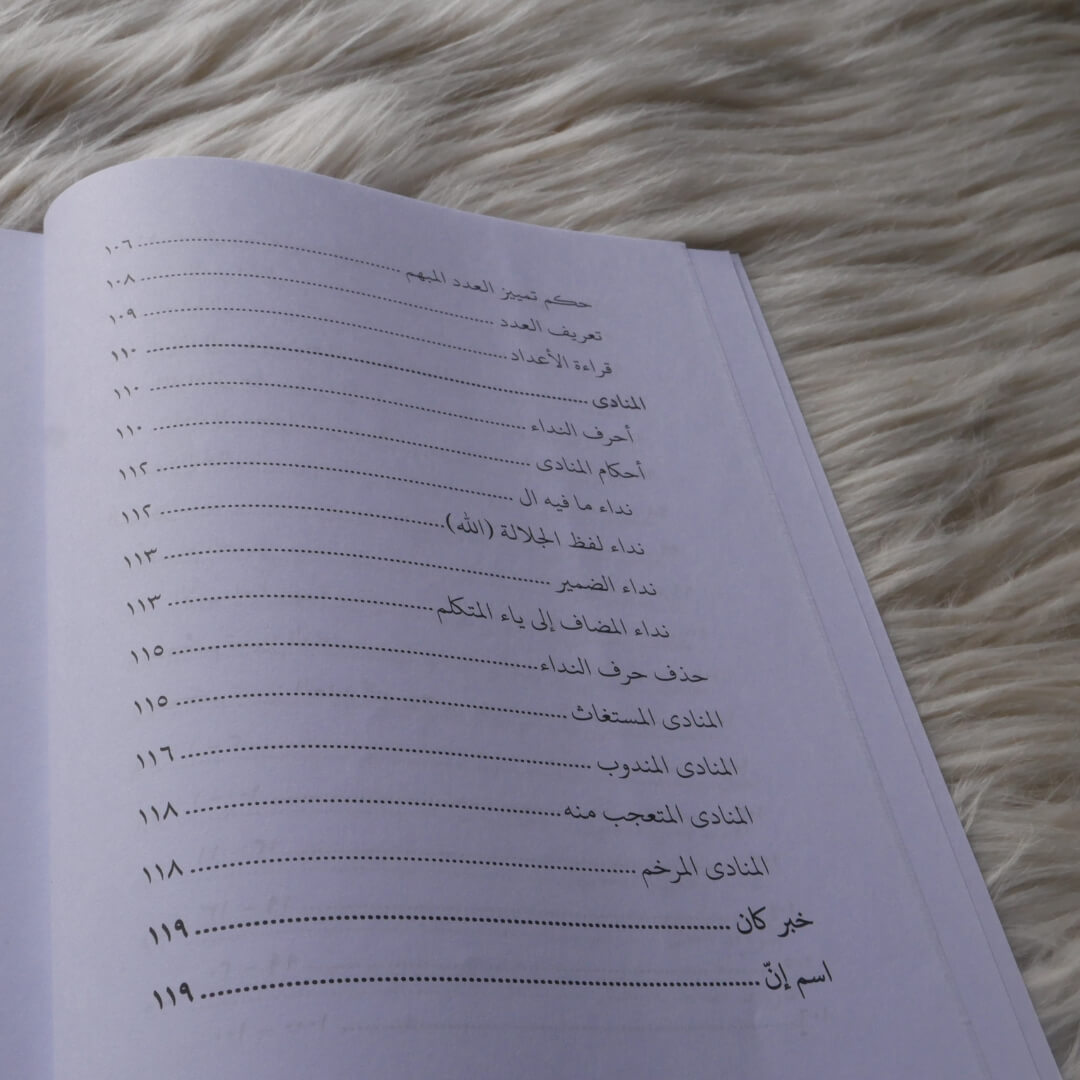 حكم تمييز العدد المبهم ........ ١٠٦
تعريف العدد ........ ١٠٨
قراءة الأعداد ........ ١٠٩
المنادى ........ ١١٠
أحرف النداء ........ ١١٠
أحكام المنادى ........ ١١٠
نداء ما فيه ال ........ ١١٢
نداء لفظ الجلالة (الله) ........ ١١٢
نداء الضمير ........ ١١٣
نداء المضاف إلى ياء المتكلم ........ ١١٣
حذف حرف النداء ........ ١١٥
المنادى المستغاث ........ ١١٥
المنادى المندوب ........ ١١٦
المنادى المتعجب منه ........ ١١٨
المنادى المرخم ........ ١١٨
خبر كان ........ ١١٩
اسم إنّ ........ ١١٩